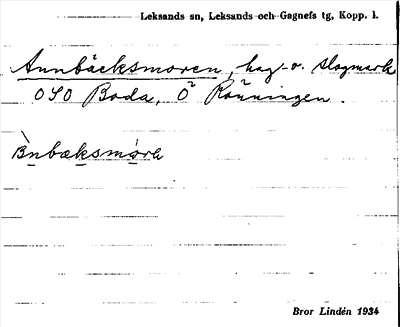 Leksands sn, Leksands och Gagnefs tg, Kopp. l.
Annbäcksmoren, hag- o. slogmark
OSO Boda, Ö Rönningen.
Bror Lindén 1934